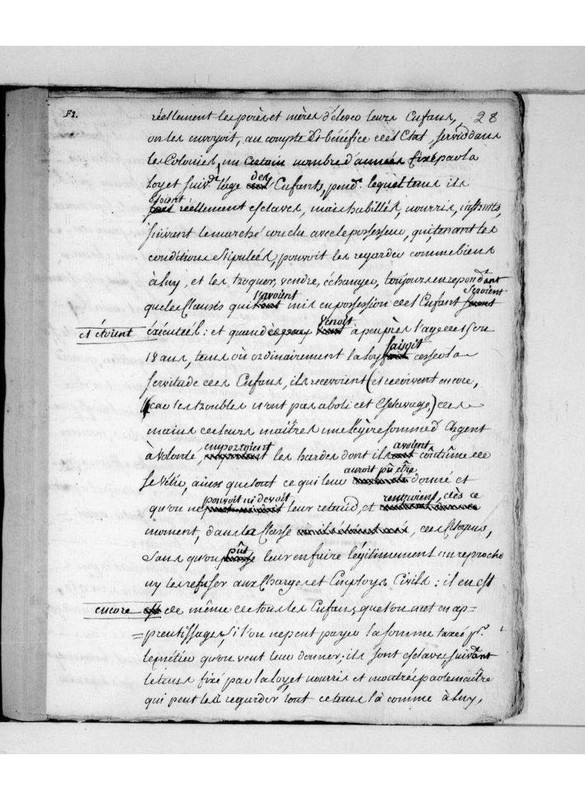 F2.
28
réellement les pères et mères d'élever leurs Enfans,
on les envoyoit, au compte et bénéfice de l'Etat servir dans
les Colonies, un certain nombre d'années fixé par la
loy et suiv.t l'âge des Enfants, pend.t lequel tems ils
étoient réellement esclaves, mais habillés, nourris, instruits,
suivant le marché conclu avec le possesseur, qui, tenant les
conditions stipulées, pouvoit les regarder comme biens
à luy, et les troquer, vendre, échanger, toujours en répondant
que les Clauses qui l'avoient mis en possession de l'Enfant seroient
et étoient
exécutées: et quand venoit à peu près l'age de 17 ou
18 ans, tems où ordinairement la loy faisoit cesser la
servitude de ces Enfans, ils recevoient (et reçoivent encore,
car les troubles n'ont pas aboli cet Esclavage,) des
mains de leurs maîtres une légère somme d'Argent
à volonté, emportoient les hardes dont ils avoient coutume de
se vêtir, ainsi que tout ce qui leur auroit pû être donné et
qu'on ne pouvoit ni devoit leur retenir, et rentroient, dès ce
moment, dans la Classe des Citoyens,
sans qu'on pût leur en faire légitimement un reproche
ny les refuser aux Charges et Emplois Civils: il en est
encore
de même de tous les Enfans que l'on met en ap=
=prentissage; si l'on ne peut payer la somme taxée p.r
le métier qu'on veut leur donner, ils sont esclaves suivant
le tems fixé par la loy et nourris et montrés par le maître
qui peut les regarder tout ce tems là comme à luy,